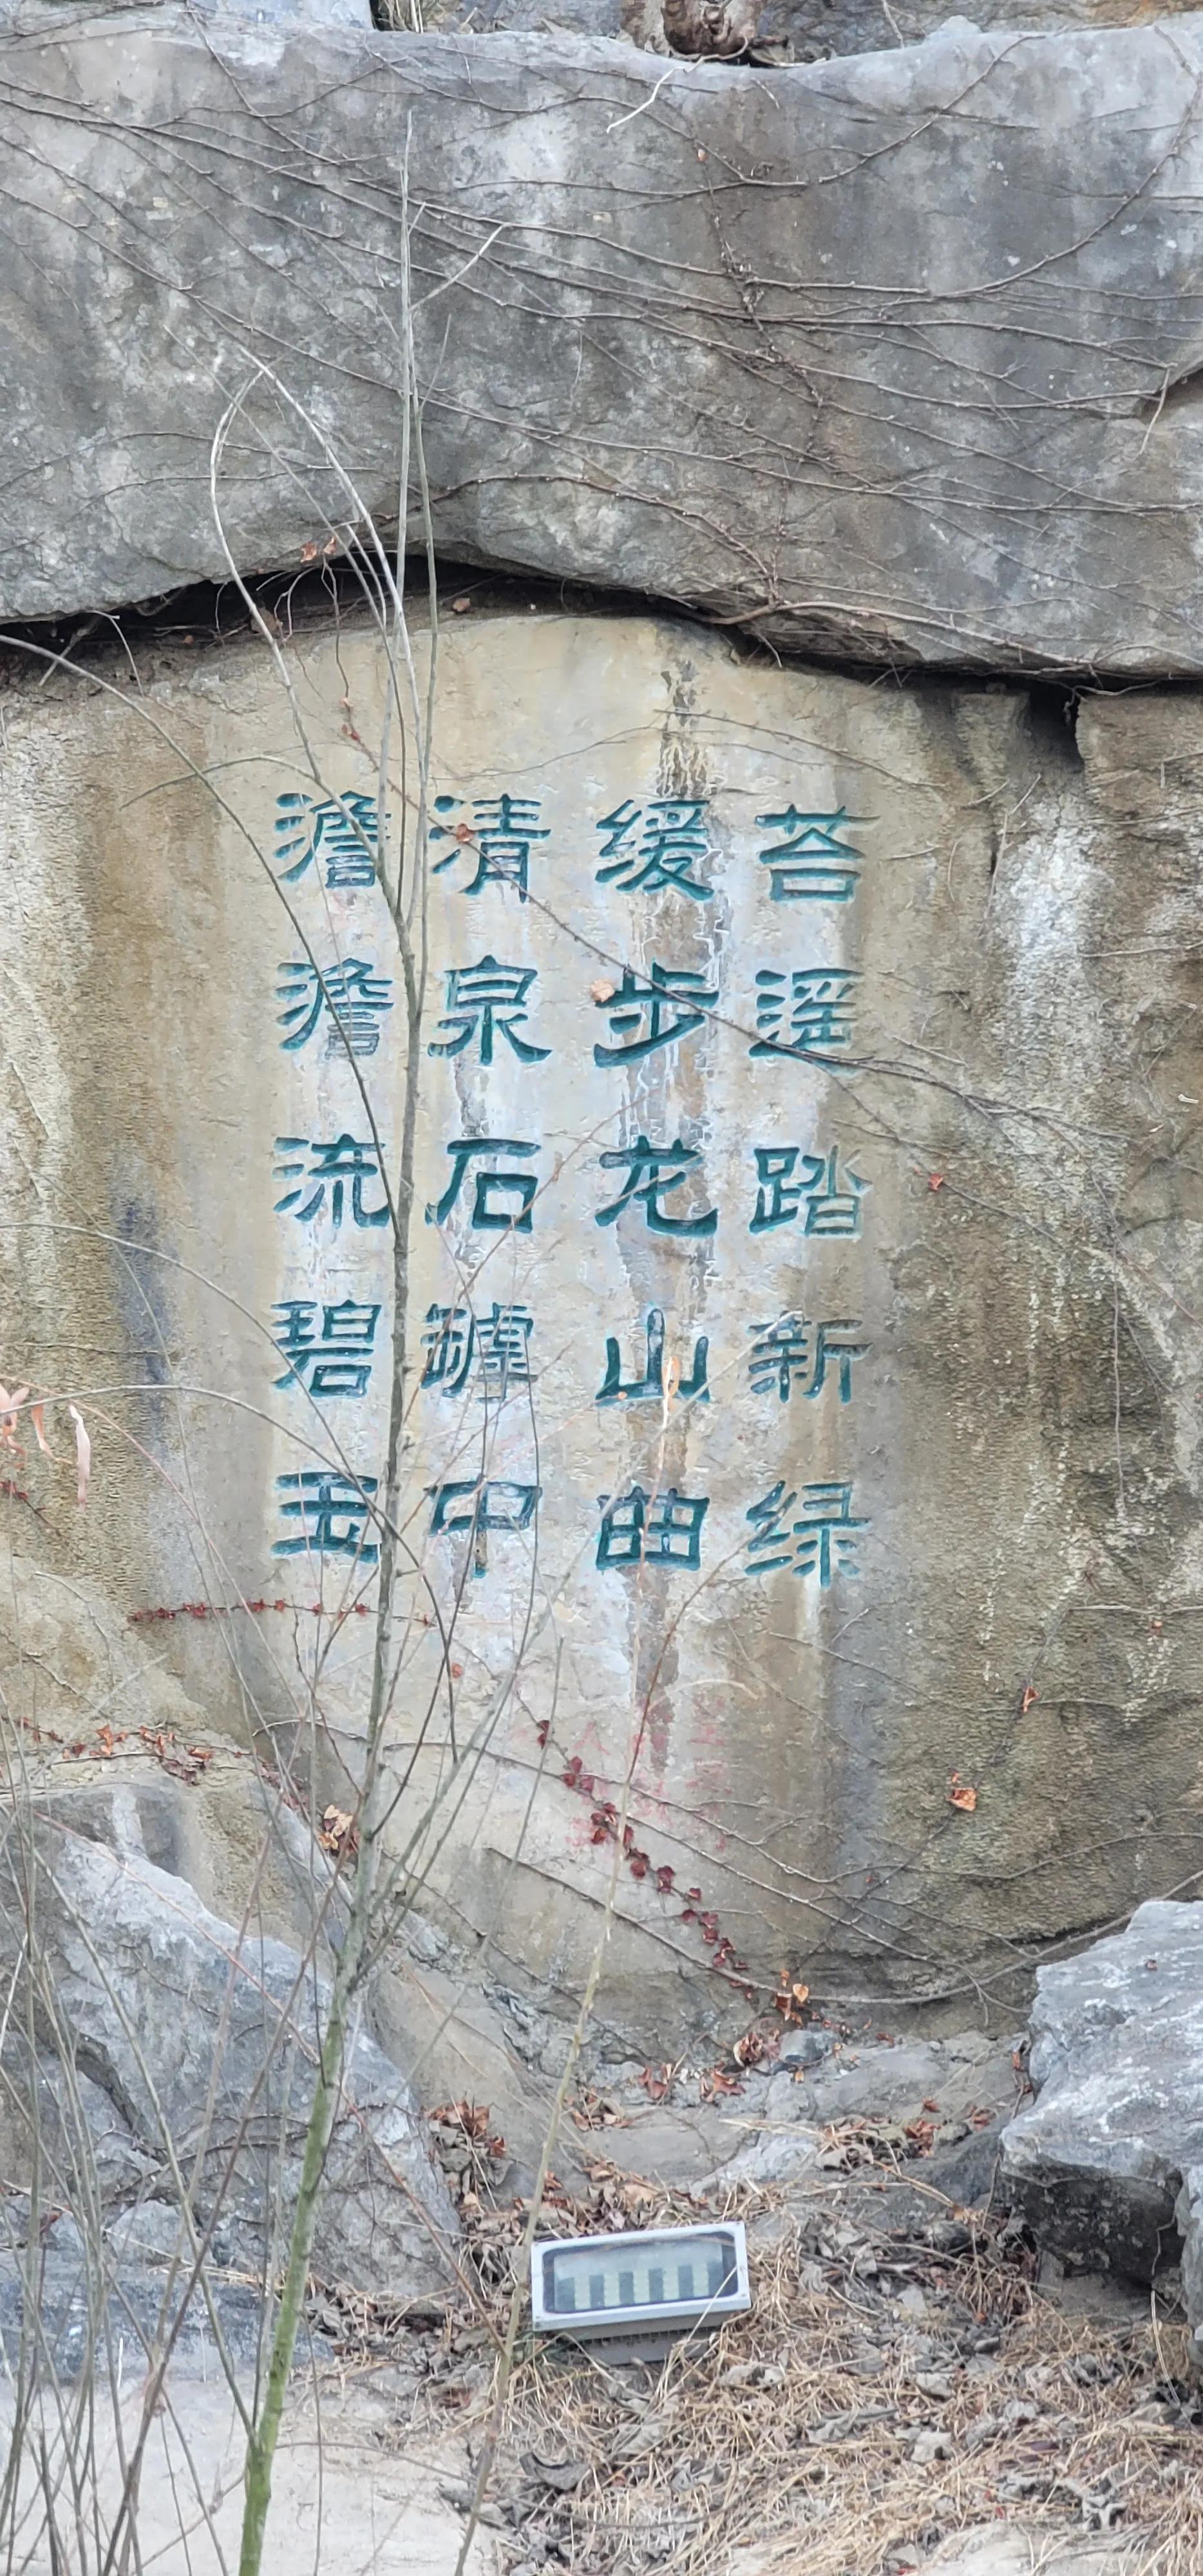 苔遥踏新绿
缓步龙山曲
清泉石罅中
澹澹流碧玉